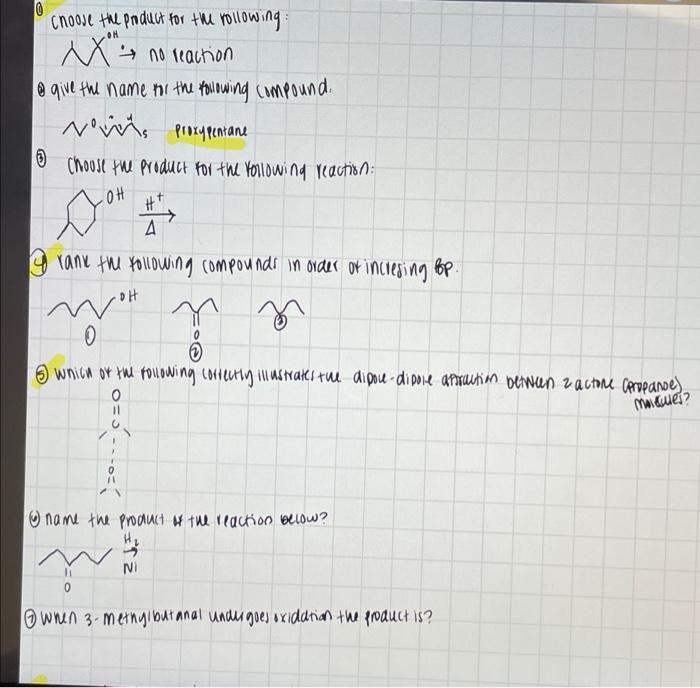 ① choose the product for the following:
OH
[O] → no reaction
② give the name for the following compound.
O 1 2 3 4 5 propxypentane
③ Choose the product for the following reaction:
OH H+
Δ
④ rank the following compounds in order of incresing BP.
OH
① O ② ③
⑤ which of the following correctly illustrates the dipole-dipole attraction between 2 actone (propanoe)
molecules?
O
C
O
⑥ name the product of the reaction below?
H2
Ni
O
⑦ when 3-methylbutanal undergoes oxidation the product is?